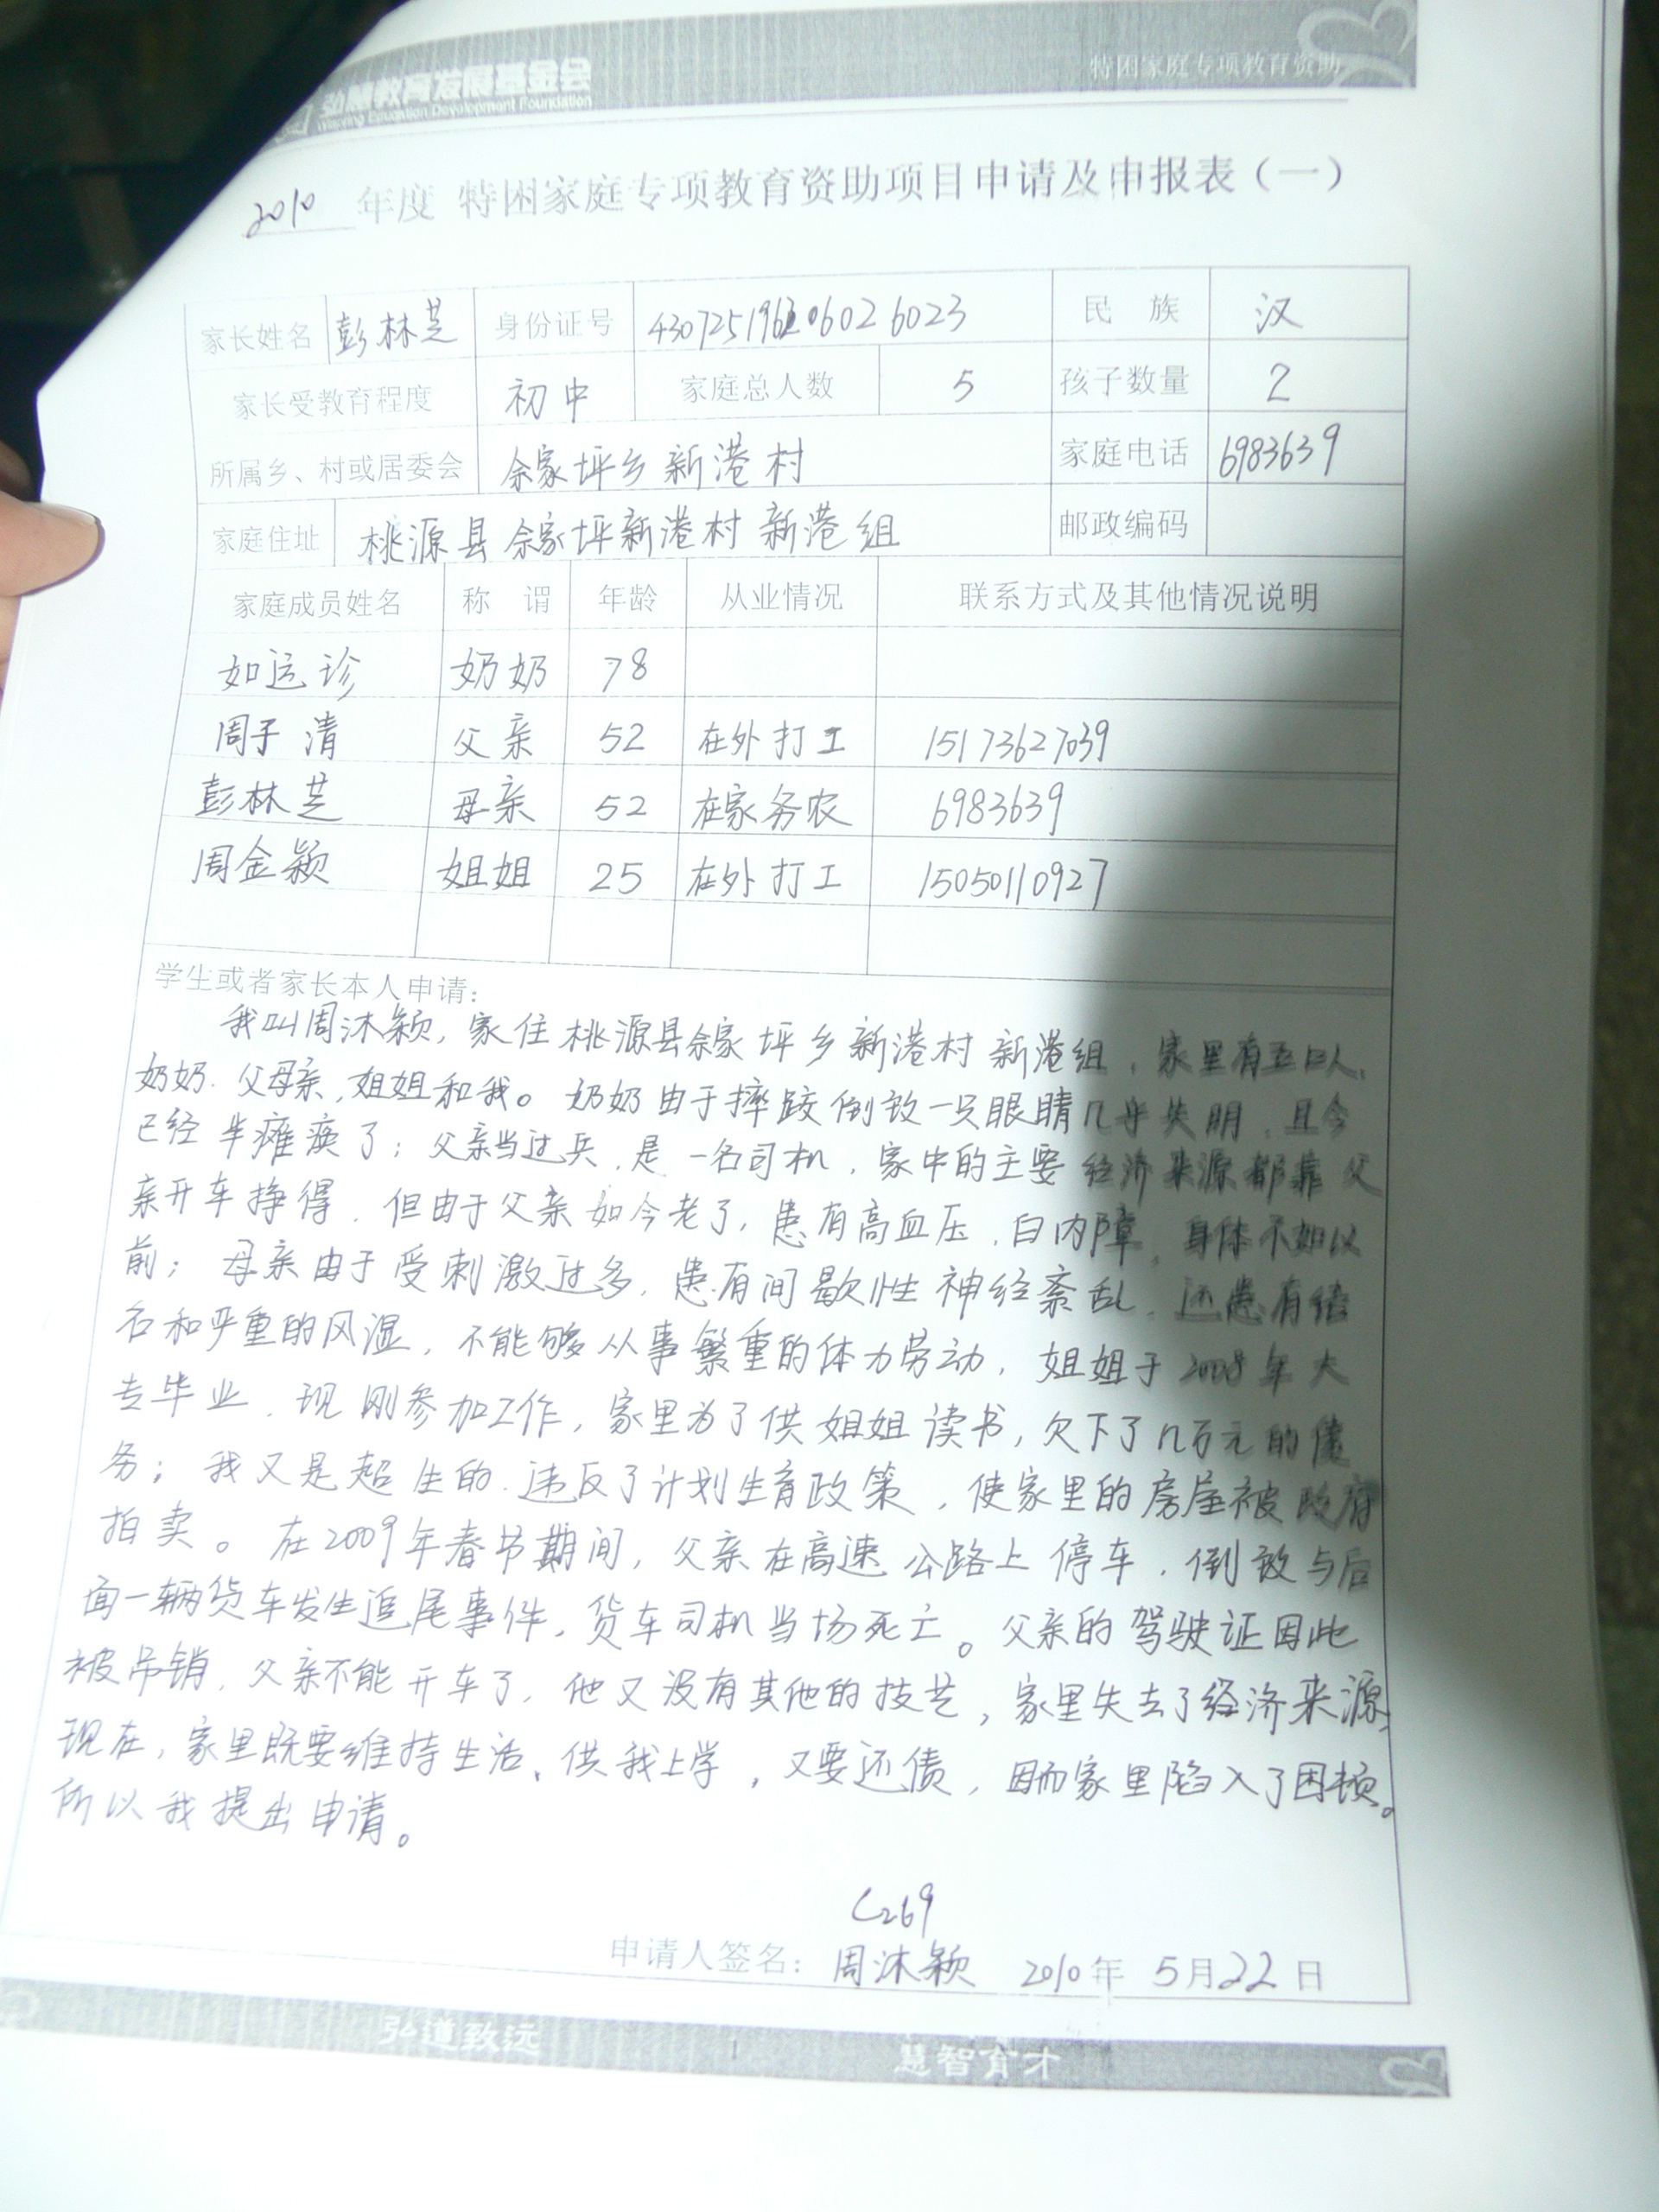 弘慧教育发展基金会
Education Development Foundation
特困家庭专项教育资助
2010 年度 特困家庭专项教育资助项目申请及申报表（一）
家长姓名 彭林芝 身份证号 民 族 汉
家长受教育程度 初中 家庭总人数 5 孩子数量 2
所属乡、村或居委会 佘家坪乡新港村 家庭电话 6983639
家庭住址 桃源县佘家坪新港村新港组 邮政编码
家庭成员姓名 称 谓 年龄 从业情况 联系方式及其他情况说明
如运珍 奶奶 78
周子清 父亲 52 在外打工 15173627039
彭林芝 母亲 52 在家务农 6983639
周金颖 姐姐 25 在外打工 15050110927
学生或者家长本人申请：
我叫周沐颖，家住桃源县佘家坪乡新港村新港组，家里有五口人，
奶奶、父母亲，姐姐和我。奶奶由于摔跤倒致一只眼睛几乎失明，且今
已经半瘫痪了；父亲当过兵，是一名司机，家中的主要经济来源都靠父
亲开车挣得，但由于父亲如今老了，患有高血压，白内障，身体不如以
前；母亲由于受刺激过多，患有间歇性神经紊乱，还患有结
石和严重的风湿，不能够从事繁重的体力劳动，姐姐于2008年大
专毕业，现刚参加工作，家里为了供姐姐读书，欠下了几万元的债
务；我又是超生的，违反了计划生育政策，使家里的房屋被政府
拍卖。在2009年春节期间，父亲在高速公路上停车，倒致与后
面一辆货车发生追尾事件，货车司机当场死亡。父亲的驾驶证因此
被吊销，父亲不能开车了，他又没有其他的技艺，家里失去了经济来源，
现在，家里既要维持生活、供我上学，又要还债，因而家里陷入了困顿。
所以我提出申请。
C269
申请人签名：周沐颖 2010年 5月22日
弘道致远 1 慧智育才